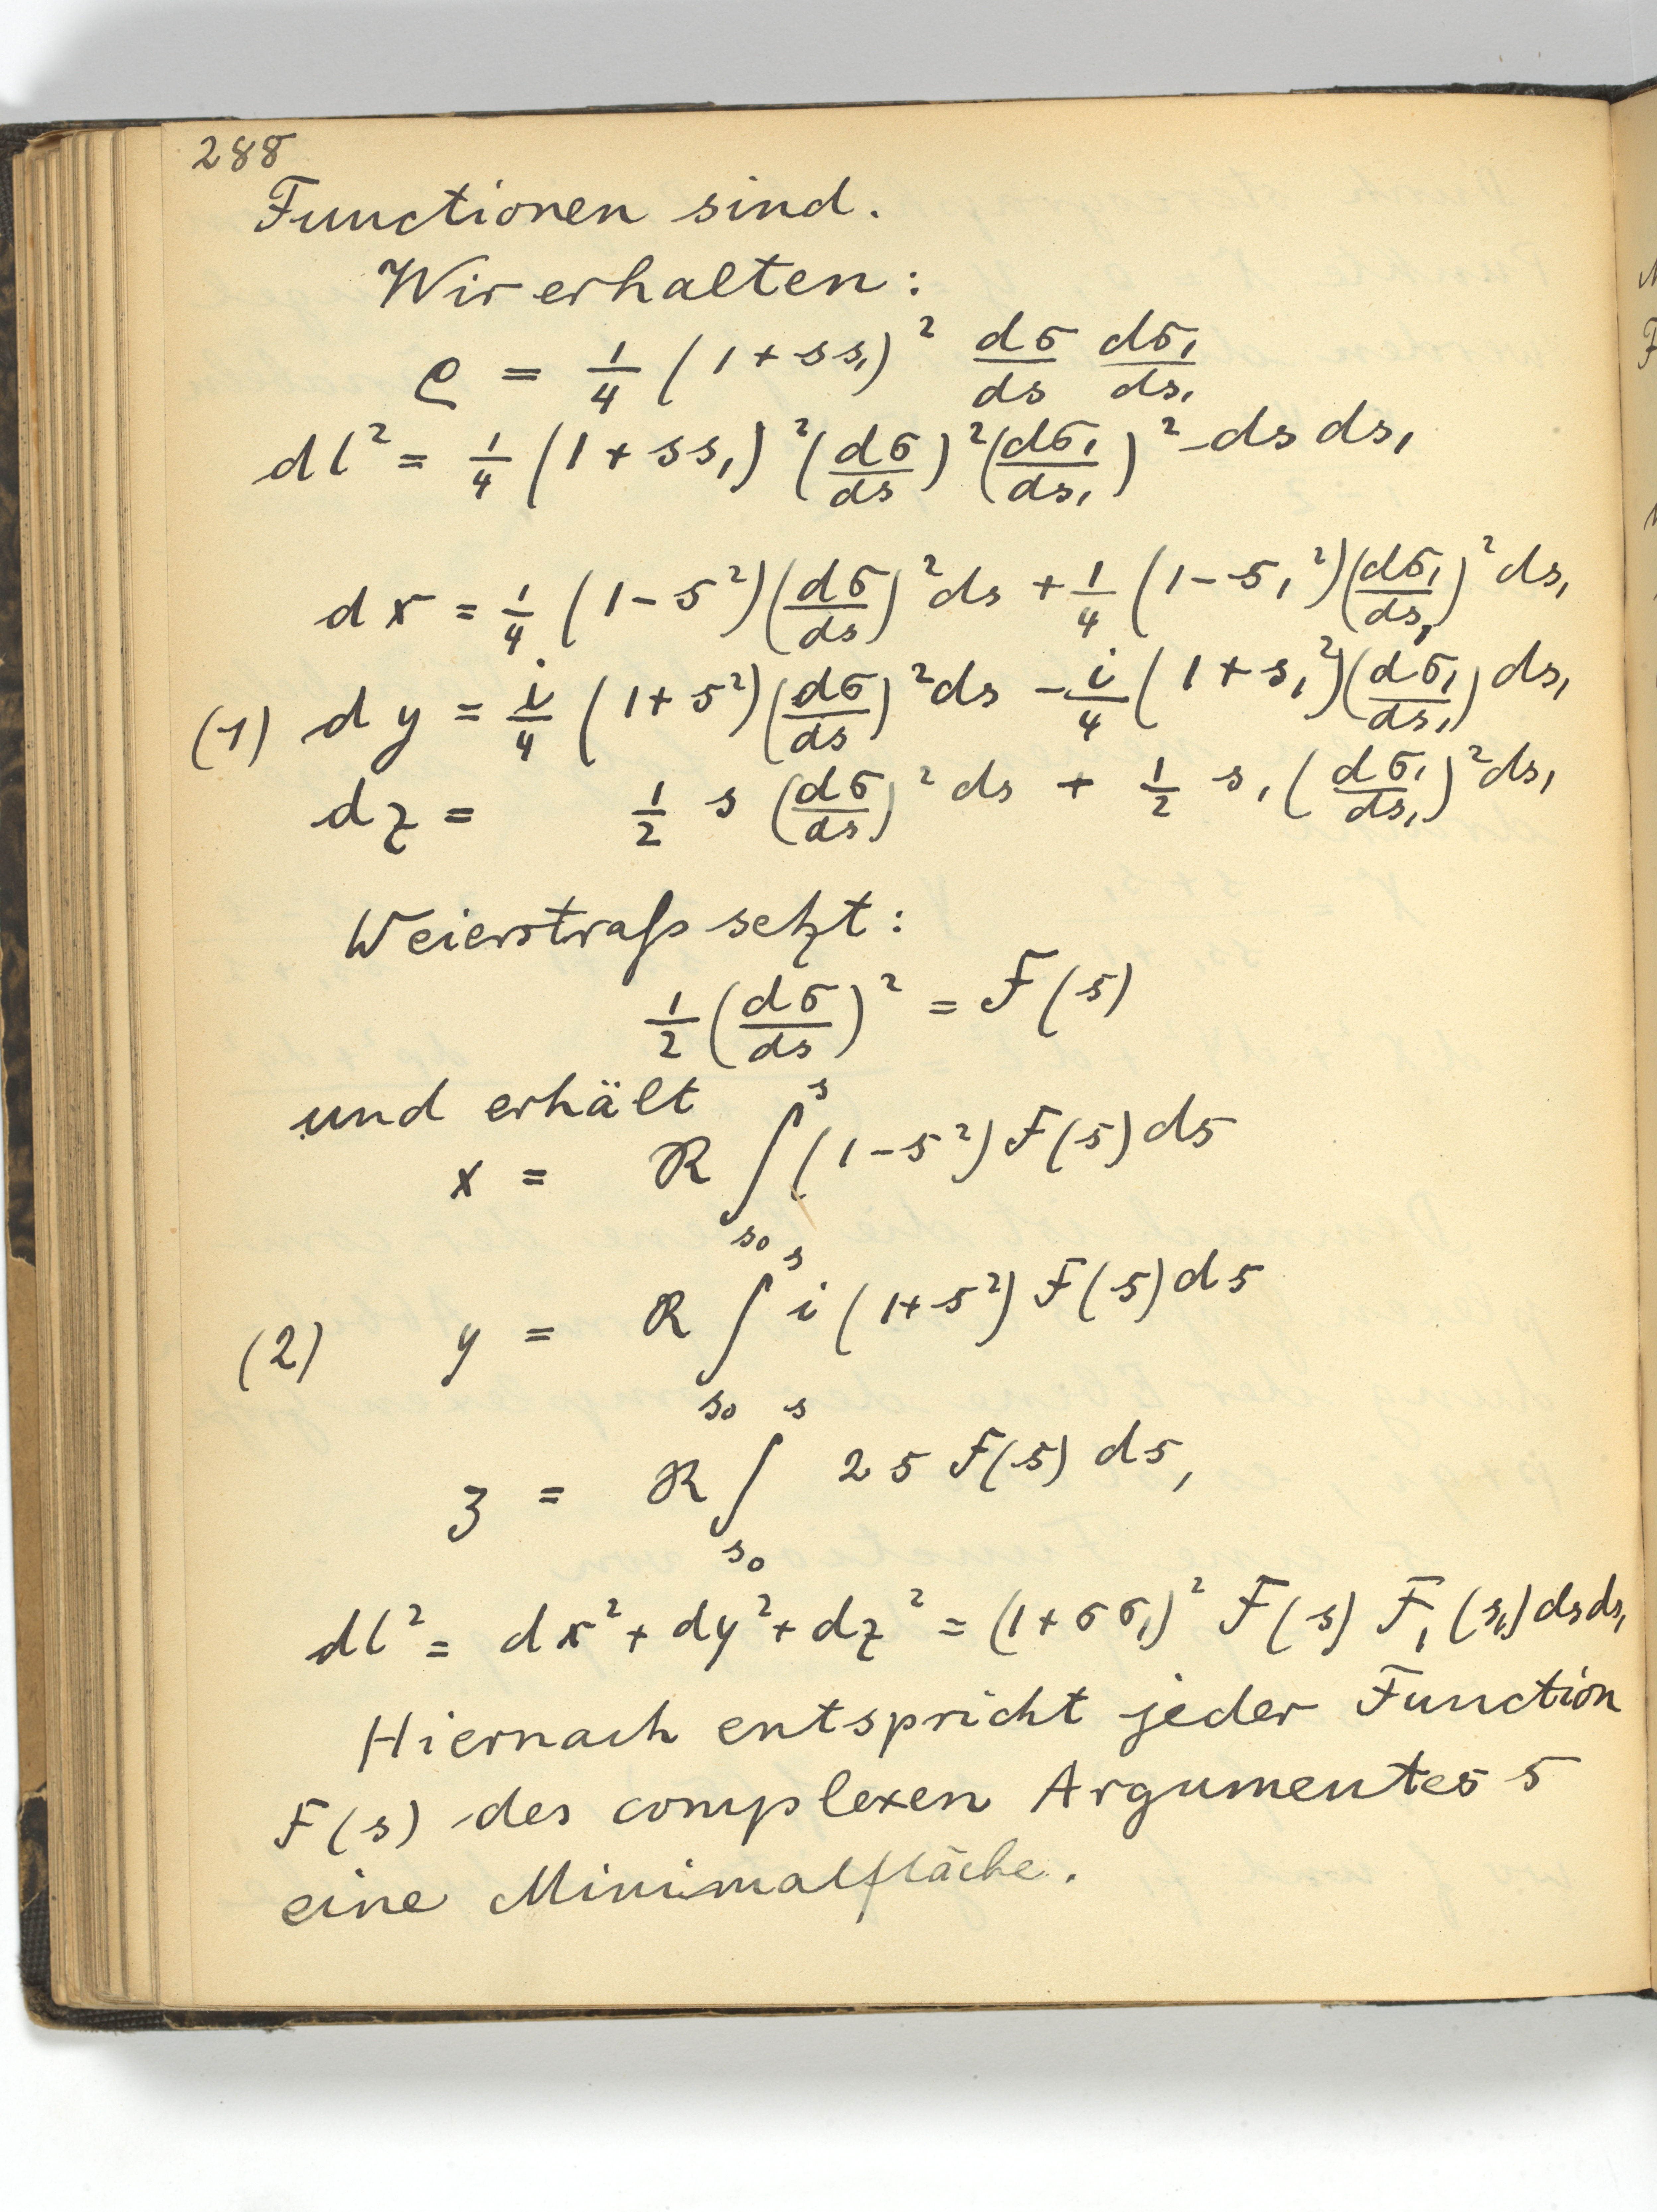 288
Functionen sind.
Wir erhalten:
ϱ = 1/4 (1 + ss₁)² dσ/ds dσ₁/ds₁
dl² = 1/4 (1 + ss₁)² (dσ/ds)² (dσ₁/ds₁)² ds ds₁
dx = 1/4 (1 - s²) (dσ/ds)² ds + 1/4 (1 - s₁²) (dσ₁/ds₁)² ds₁
(1) dy = i/4 (1 + s²) (dσ/ds)² ds - i/4 (1 + s₁²) (dσ₁/ds₁) ds₁
dz = 1/2 s (dσ/ds)² ds + 1/2 s₁ (dσ₁/ds₁)² ds₁
Weierstraß setzt:
1/2 (dσ/ds)² = F(s)
und erhält
x = ℜ ∫_{s₀}^{s} (1 - s²) F(s) ds
(2) y = ℜ ∫_{s₀}^{s} i (1 + s²) F(s) ds
z = ℜ ∫_{s₀}^{s} 2s F(s) ds,
dl² = dx² + dy² + dz² = (1 + σσ₁)² F(s) F₁(s₁) ds ds₁
Hiernach entspricht jeder Function
F(s) des complexen Argumentes s
eine Minimalfläche.